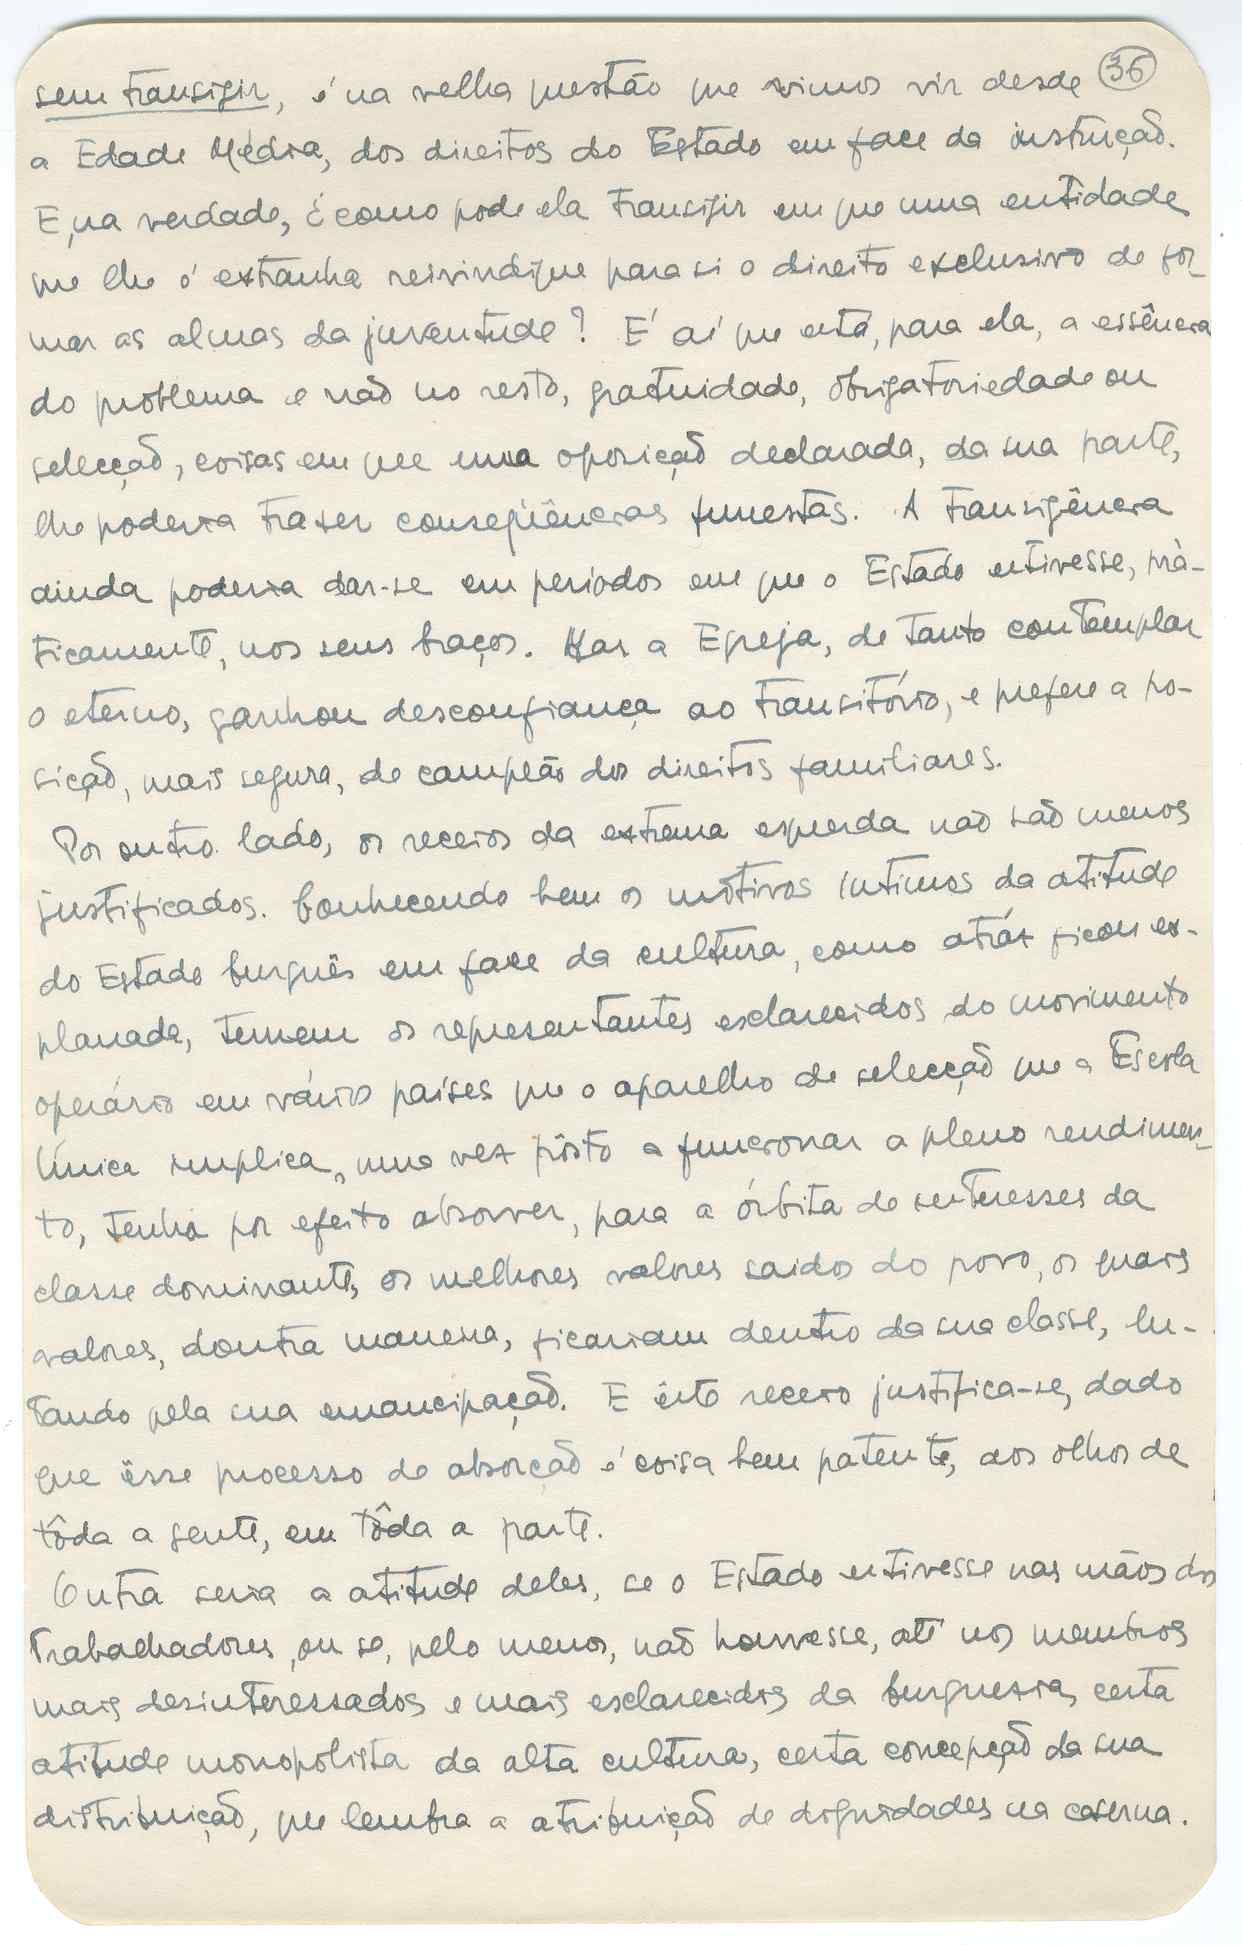 36
sem transigir, é na velha questão que vimos vir desde
a Edade Média, dos direitos do Estado em face da instrução.
E, na verdade, ¿como pode ela transigir em que uma entidade
que lhe é extranha reivindique para si o direito exclusivo de for-
mar as almas da juventude? E' aí que está, para ela, a essência
do problema e não no resto, gratuidade, obrigatoriedade ou
selecção, coisas em que uma oposição declarada, da sua parte,
lhe poderia trazer conseqüências funestas. A transigência
ainda poderia dar-se em períodos em que o Estado estivesse, prà-
ticamente, nos seus braços. Mas a Egreja, de tanto contemplar
o eterno, ganhou desconfiança ao transitório, e prefere a po-
sição, mais segura, de campeão dos direitos familiares.
Por outro lado, os receios da extrema esquerda não são menos
justificados. Conhecendo bem os motivos íntimos da atitude
do Estado burguês em face da cultura, como atráz ficou ex-
planada, temem os representantes esclarecidos do movimento
operário em vários países que o aparelho de selecção que a Escola
Única implica, uma vez pôsto a funcionar a pleno rendimen-
to, tenha por efeito absorver, para a órbita de interesses da
classe dominante, os melhores valores saidos do povo, os quais
valores, doutra maneira, ficariam dentro da sua classe, lu-
tando pela sua emancipação. E êste receio justifica-se, dado
que êsse processo de absorção é coisa bem patente, aos olhos de
tôda a gente, em tôda a parte.
Outra seria a atitude deles, se o Estado estivesse nas mãos dos
trabalhadores, ou se, pelo menos, não houvesse, até nos membros
mais desinteressados e mais esclarecidos da burguezia, certa
atitude monopolista da alta cultura, certa concepção da sua
distribuição, que lembra a atribuição de dignidades na caserna.